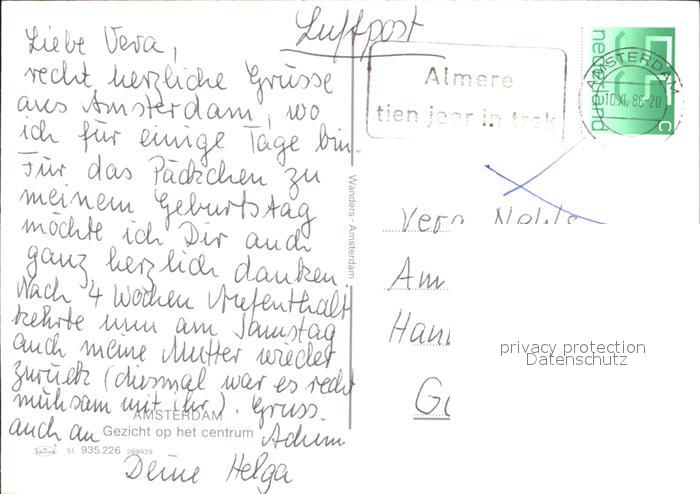 Luftpost
Liebe Vera,
recht herzliche Grüsse
aus Amsterdam, wo
ich für einige Tage bin.
Für das Päckchen zu
meinem Geburtstag
möchte ich Dir auch
ganz herzlich danken.
Nach 4 Wochen Aufenthalt
kehrte nun am Samstag
auch meine Mutter wieder
zurück (diesmal war es recht
mühsam mit ihr). Gruss
auch an Achim
Deine Helga
AMSTERDAM
Gezicht op het centrum
st. 935.226 269929
Wanders - Amsterdam
Almere
tien jaar in trek
nederland
c
AMSTERDAM
10.XI. 86-20
Vera
Am
Han
G
privacy protection
Datenschutz